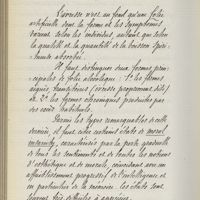 L'ivresse n'est au fond qu'une folie
artificielle dont la forme et les symptômes
varient selon les individus, autant que selon
la qualité et la quantité de la boisson spiri-
tueuse absorbée.
Il faut distinguer deux formes prin-
cipales de folie alcoolique : 1° les formes
aiguës transitoires (ivresse proprement dite)
et 2° les formes chroniques produites par
des excès habituels.
Parmi les types remarquables de cette
dernière, il faut citer certains états de moral
insanity, caractérisés par la perte graduelle
de tous les sentiments et de toutes les notions
d'esthétique et de morale, coïncidant avec un
affaiblissement progressif de l'intelligence et
en particulier de la mémoire. Ces états sont
toujours très difficiles à apprécier